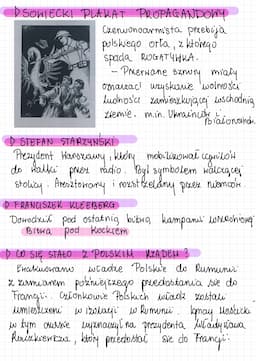 ▷ SOWIECKI PLAKAT PROPAGANDOWY
Czerwonoarmista przebija
polskiego orła, z którego
spada ROGATYWKA.
– Przerwane sznury miały
oznaczać uzyskanie wolności
ludności zamieszkującej wschodnią
ziemie. m.in. Ukraińców i
Białorusinów.
▷ STEFAN STARZYŃSKI
Prezydent Warszawy, który mobilizował cywilów
do walki przez radio. Był symbolem walczącej
stolicy. Aresztowany i rozstrzelany przez niemców.
▷ FRANCISZEK KLEEBERG
Dowodził pod ostatnią bitwą kampanii wrześniowej
Bitwa pod Kockiem
▷ CO SIĘ STAŁO Z POLSKIM RZĄDEM?
Ewakuowano władze Polskie do Rumunii
z zamiarem późniejszego przedostania się do
Francji. Członkowie Polskich władz zostali
umieszczeni w izolacji w Rumunii. Ignacy Mościcki
w tym czasie wyznaczył na prezydenta Władysława
Raczkiewicza, który przedostał się do Francji.